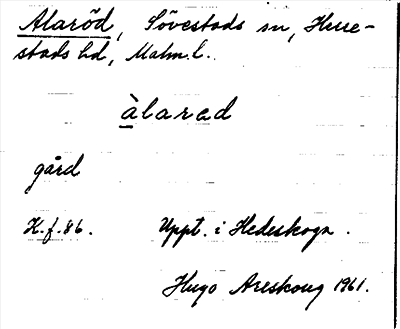 Alaröd, Sövestads sn, Herre-
stads hd, Malm. l.
àlarad
gård
K.f. 86. Uppt. i Hedeskoga.
Hugo Areskoug 1961.